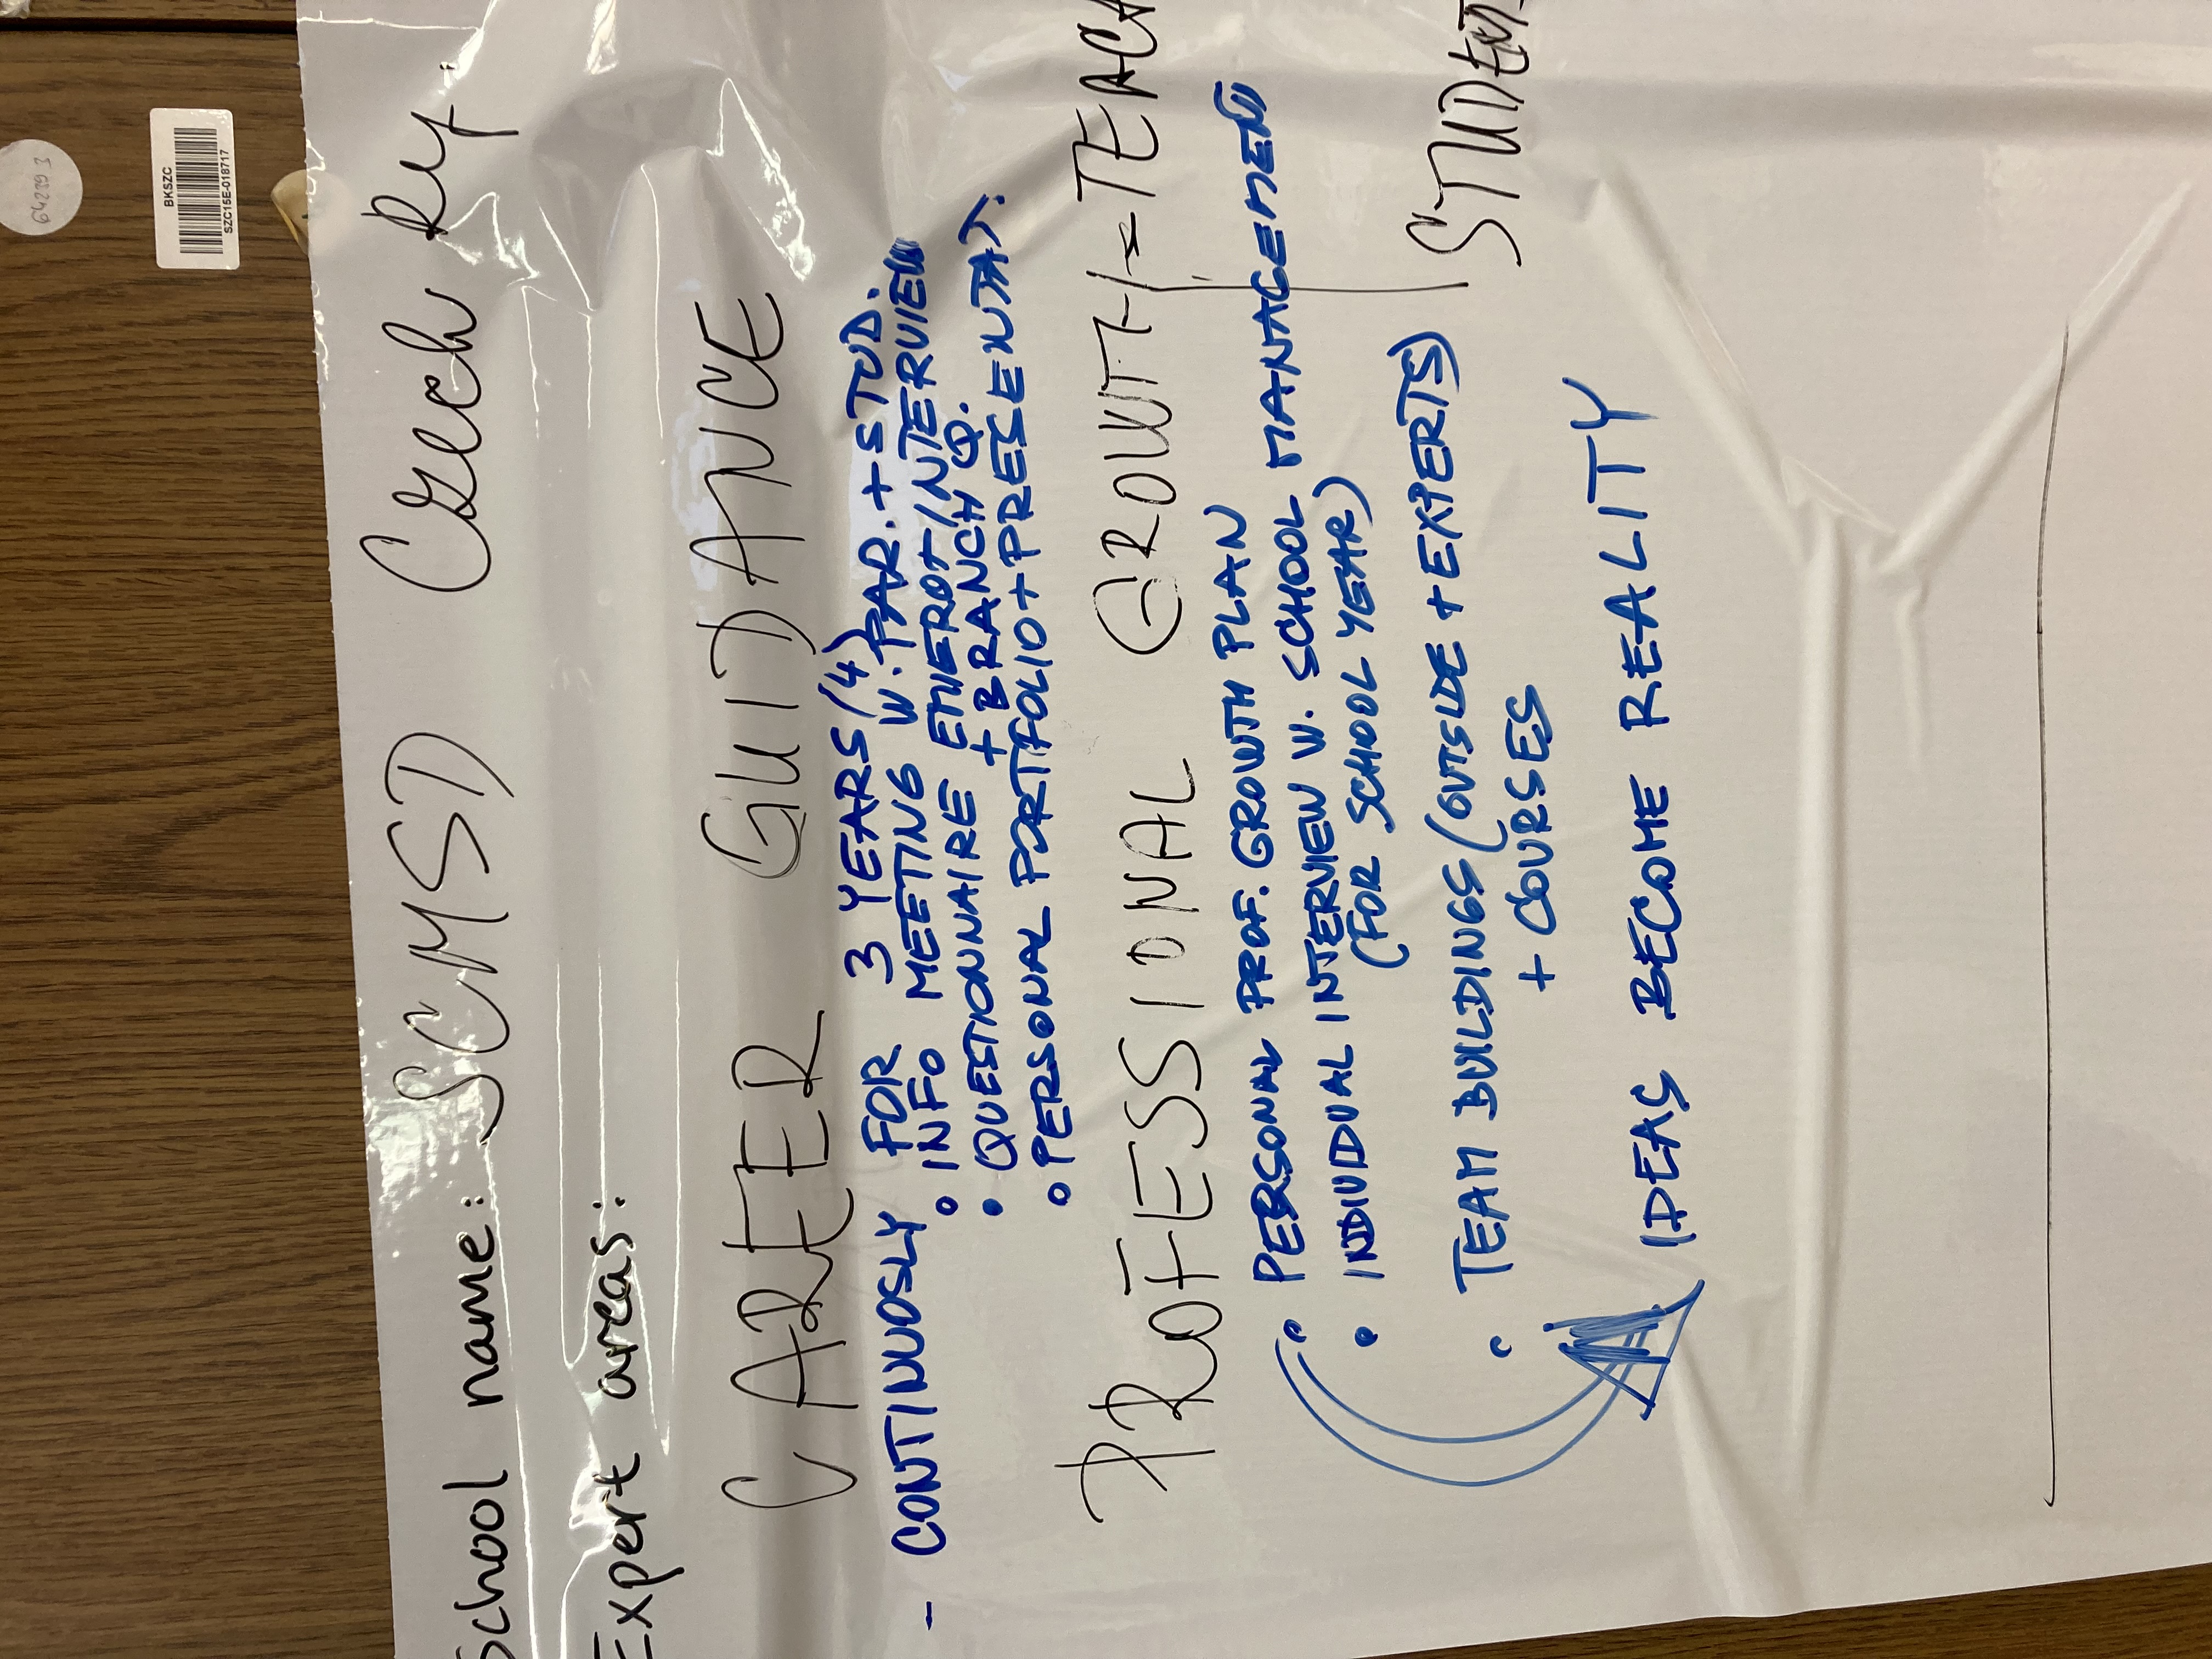 School name: SCMSD Czech Rep.
Expert areas:
CAREER GUIDANCE
- CONTINUOSLY FOR 3 YEARS (4)
• INFO MEETING W. PAR. + STUD.
• QUESTIONNAIRE EMIEROT INTERVIEW
+ BRANCH Q.
• PERSONAL PORTIFOLIO + PRESENTAT.
PROFESSIONAL GROWTH = TEACH
STUDENT
• PERSONAL PROF. GROWTH PLAN
• INDIVIDUAL INTERVIEW W. SCHOOL MANAGEMENT
(FOR SCHOOL YEAR)
• TEAM BUILDINGS (OUTSIDE + EXPERTS)
+ COURSES
IDEAS BECOME REALITY
BKSZC
SZC15E-018717